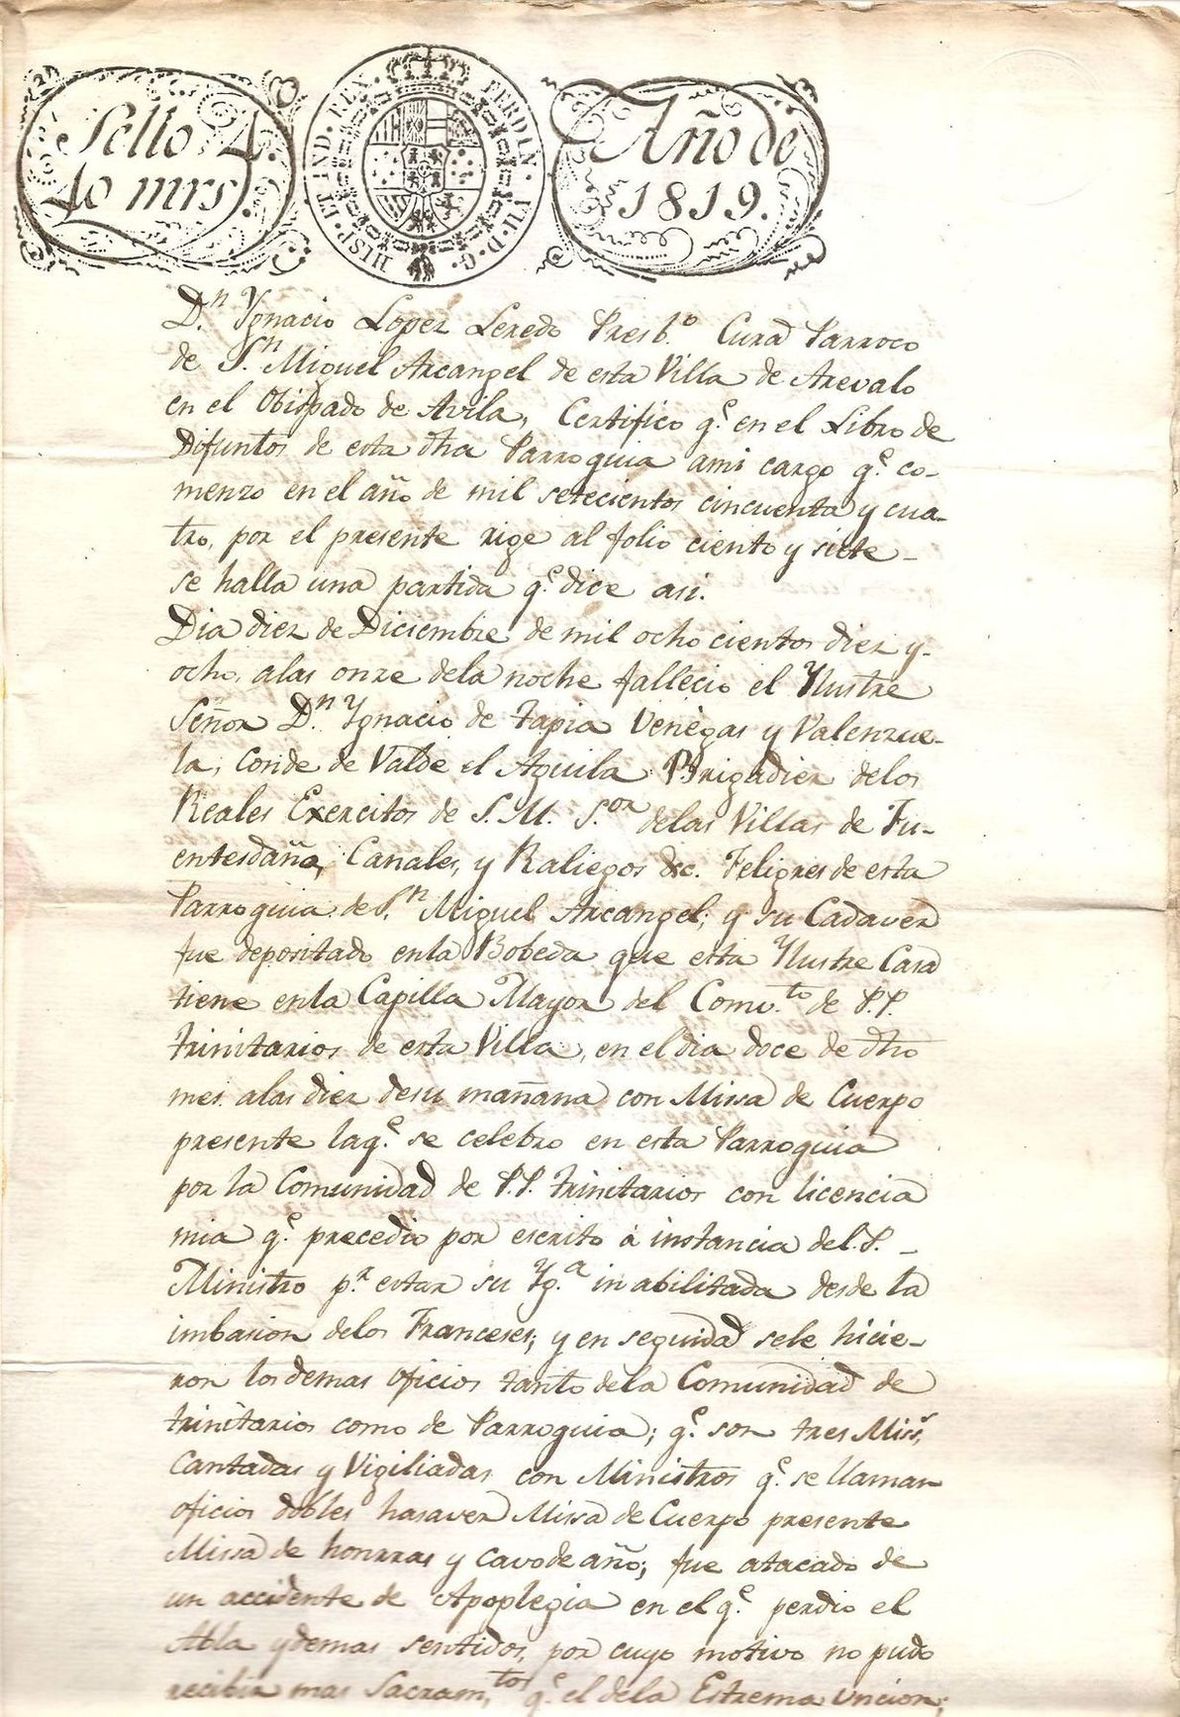 Sello 4.
40 mrs.
HISP. ET IND. REX. FERDIN. VII. D. G.
Año de
1819.
D.n Ygnacio Lopez Leredo Presb.o Cura Parroco
de S.n Miguel Arcangel de esta Villa de Arevalo
en el Obispado de Avila, Certifico q.e en el Libro de
Difuntos de esta dha Parroquia ami cargo q.e co-
menzo en el año de mil setecientos cincuenta y cua-
tro, por el presente rige al folio ciento y siete -
se halla una partida q.e dice asi.
Dia diez de Diciembre de mil ocho cientos diez y-
ocho, alas onze dela noche fallecio el Yllustre
Señor D.n Ygnacio de Tapia Venègas y Valenzue-
la, Conde de Valde el Aguila Brigadier delos
Reales Exercitos de S. M. S.or delas Villas de Fu-
entesdaña, Canales, y Raliegos &c. Feligres de esta
Parroquia de S.n Miguel Arcangel; y su Cadaver
fue depositado enla Bobeda que esta Yllustre Casa
tiene enla Capilla Mayor del Comv.to de P.P.
trinitarios de esta Villa, en el dia doce de dho
mes alas diez desu mañana con Missa de Cuerpo
presente laq.e se celebro en esta Parroquia
por la Comunidad de P.P. trinitarios con licencia
mia q.e precedio por escrito à instancia del P. -
Ministro p.r estar su Yg.a inabilitada desde la
imbasion delos Franceses; y en seguida sele hicie-
ron los demas oficios tanto dela Comunidad de
trinitarios como de Parroquia; q.e son tres Miss.s
Cantadas y Vigiliadas con Ministros q.e se llaman
oficios dobles hasaver Missa de Cuerpo presente
Missa de honrras y cavo de año; fue atacado de
un accidente de Apoplegia en el q.e perdio el
Abla y demas sentidos, por cuyo motivo no pudo
recibir mas Sacram.tos q.e el dela Estrema Uncion;